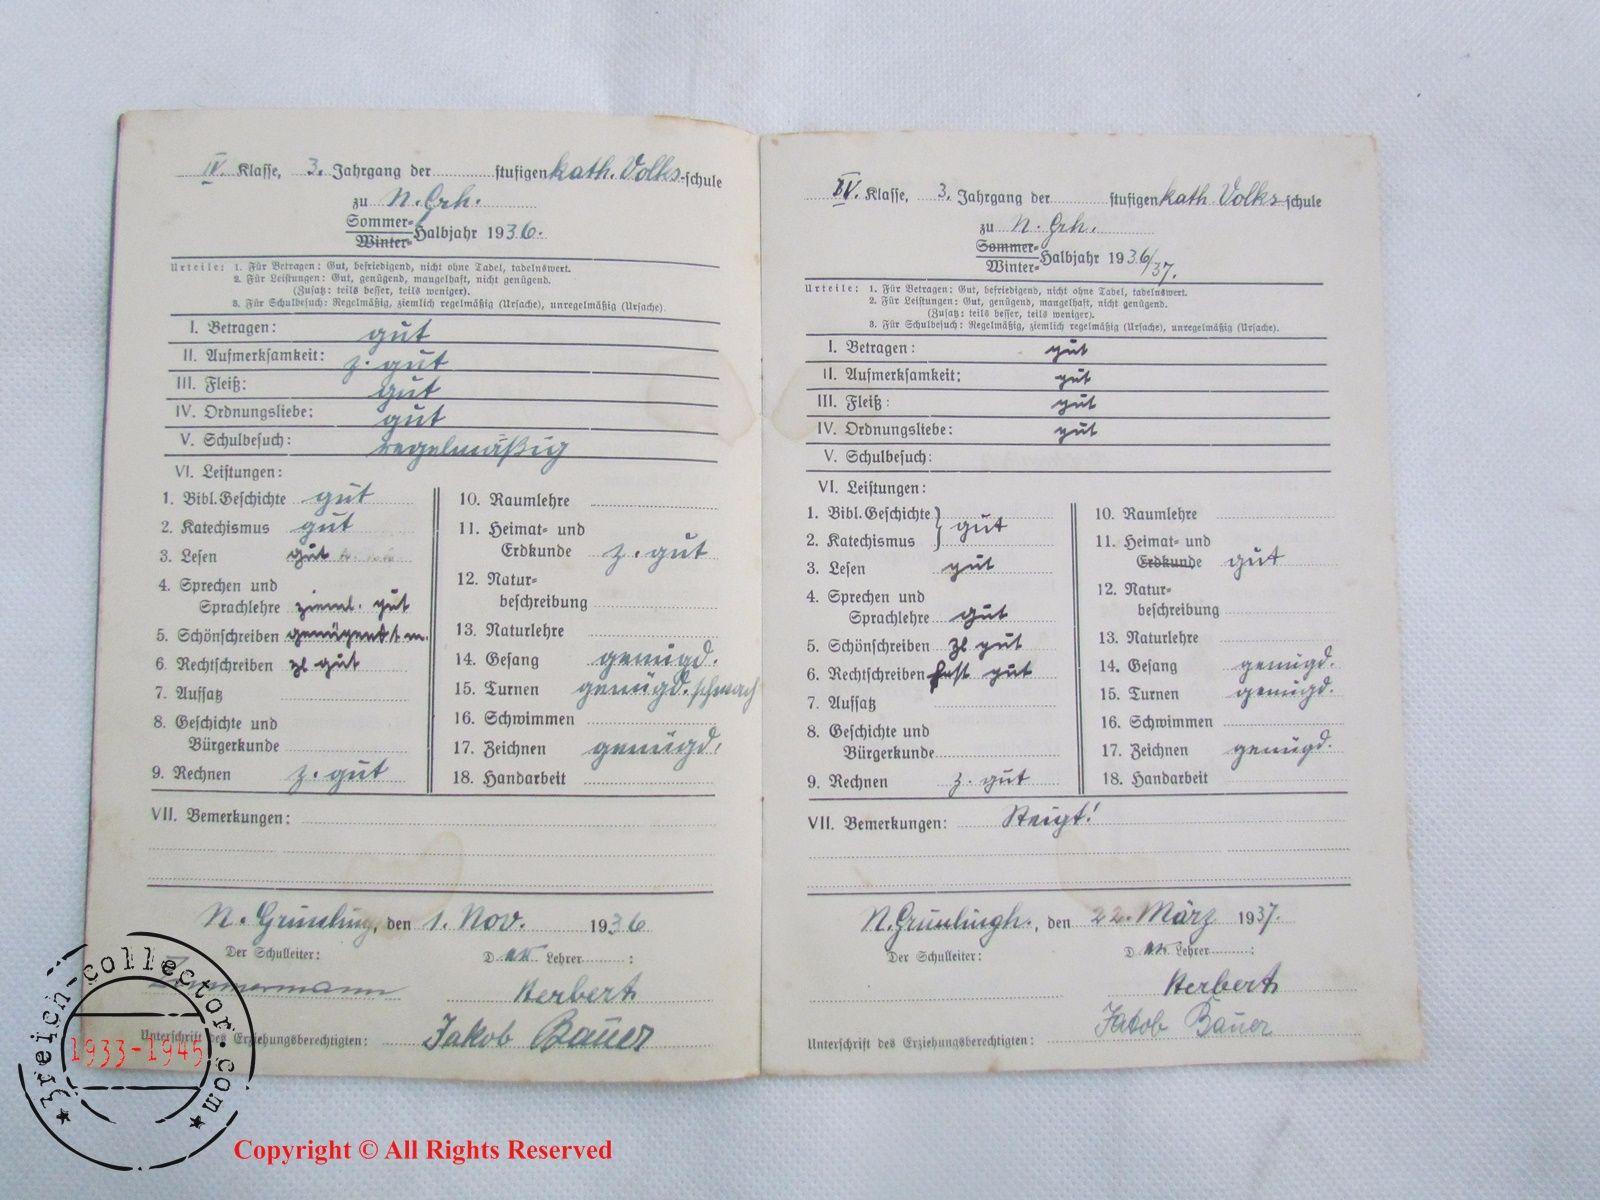 IV. Klasse, 3. Jahrgang der stufigen kath. Volks-schule
zu N. Grh.
Sommer-
Winter- Halbjahr 1936.
Urteile: 1. Für Betragen: Gut, befriedigend, nicht ohne Tadel, tadelnswert.
2. Für Leistungen: Gut, genügend, mangelhaft, nicht genügend.
(Zusatz: teils besser, teils weniger).
3. Für Schulbesuch: Regelmäßig, ziemlich regelmäßig (Ursache), unregelmäßig (Ursache).
I. Betragen: gut
II. Aufmerksamkeit: z. gut
III. Fleiß: gut
IV. Ordnungsliebe: gut
V. Schulbesuch: regelmäßig
VI. Leistungen:
1. Bibl. Geschichte gut
2. Katechismus gut
3. Lesen gut
4. Sprechen und
Sprachlehre zieml. gut
5. Schönschreiben genügend
6. Rechtschreiben zl gut
7. Aufsatz
8. Geschichte und
Bürgerkunde
9. Rechnen z. gut
10. Raumlehre
11. Heimat- und
Erdkunde z. gut
12. Natur-
beschreibung
13. Naturlehre
14. Gesang genügd.
15. Turnen genügd. schwach
16. Schwimmen
17. Zeichnen genügd.
18. Handarbeit
VII. Bemerkungen:
den 1. Nov. 1936
Der Schulleiter: Der Lehrer:
Zimmermann Herbert
Unterschrift des Erziehungsberechtigten: Jakob Bauer
IV. Klasse, 3. Jahrgang der stufigen kath. Volks-schule
zu N. Grh.
Sommer-
Winter- Halbjahr 1936/37.
Urteile: 1. Für Betragen: Gut, befriedigend, nicht ohne Tadel, tadelnswert.
2. Für Leistungen: Gut, genügend, mangelhaft, nicht genügend.
(Zusatz: teils besser, teils weniger).
3. Für Schulbesuch: Regelmäßig, ziemlich regelmäßig (Ursache), unregelmäßig (Ursache).
I. Betragen: gut
II. Aufmerksamkeit: gut
III. Fleiß: gut
IV. Ordnungsliebe: gut
V. Schulbesuch:
VI. Leistungen:
1. Bibl. Geschichte } gut
2. Katechismus
3. Lesen gut
4. Sprechen und
Sprachlehre gut
5. Schönschreiben zl gut
6. Rechtschreiben fast gut
7. Aufsatz
8. Geschichte und
Bürgerkunde
9. Rechnen z. gut
10. Raumlehre
11. Heimat- und
Erdkunde gut
12. Natur-
beschreibung
13. Naturlehre
14. Gesang genügd.
15. Turnen genügd.
16. Schwimmen
17. Zeichnen genügd.
18. Handarbeit
VII. Bemerkungen: Steigt!
den 22. März 1937.
Der Schulleiter: Der Lehrer:
Herbert
Jakob Bauer
Unterschrift des Erziehungsberechtigten:
3reich-collector.com
1933-1945
Copyright © All Rights Reserved